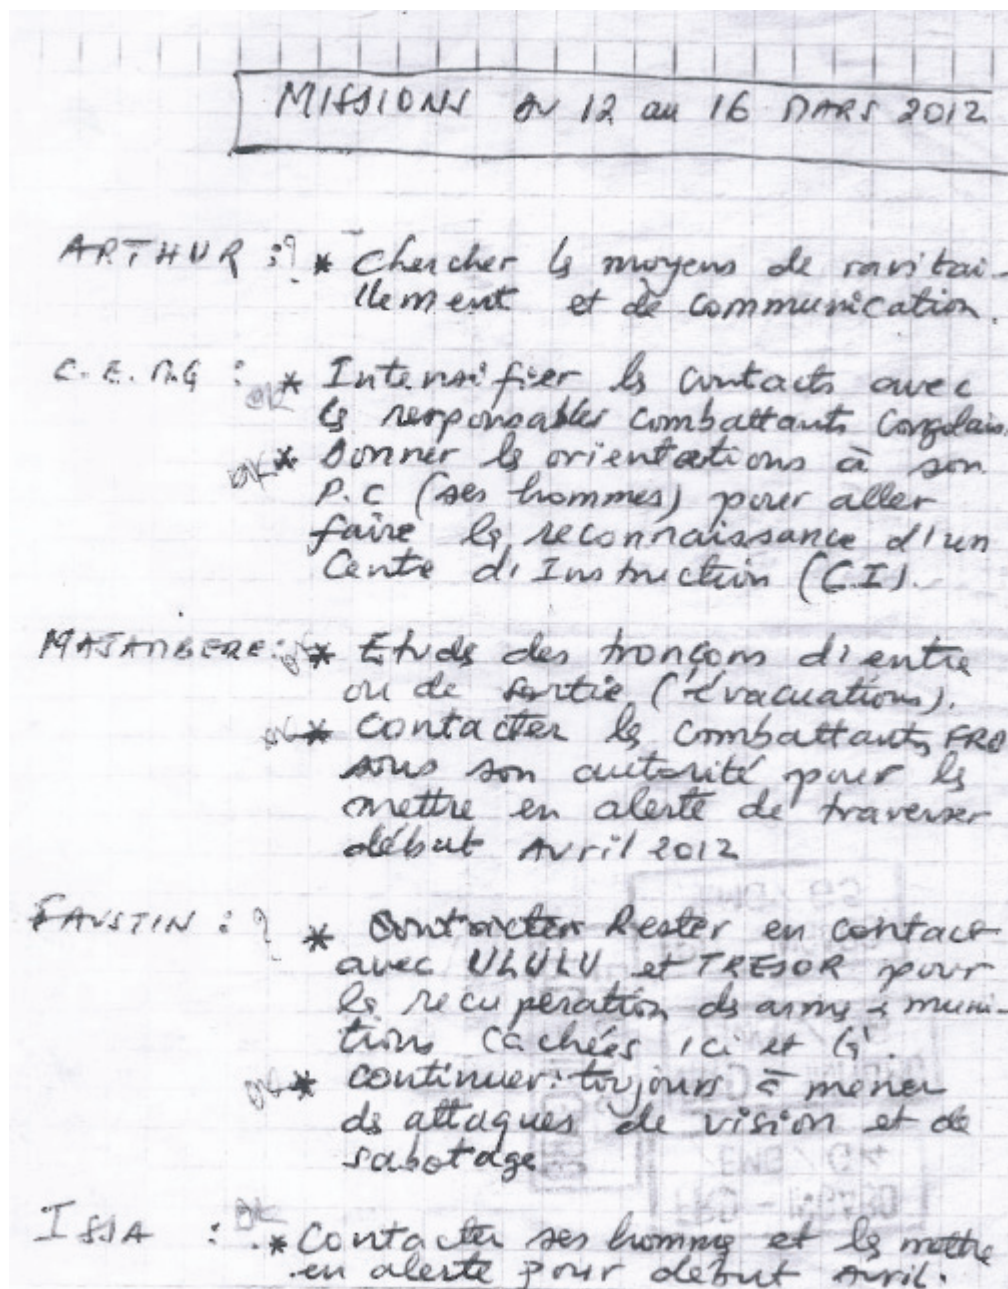 MISSIONS DU 12 au 16 MARS 2012
ARTHUR : ? * Chercher les moyens de ravitai-
llement et de communication.
C.E.M.G : OK * Intensifier les contacts avec
les responsables combattants Congolais.
OK * Donner les orientations à son
P.C (ses hommes) pour aller
faire la reconnaissance d'un
Centre d'Instruction (C.I).
MAJAMBERE : OK * Etude des tronçons d'entre
ou de sortie (évacuations).
OK * Contacter les combattants
sous son autorité pour les
mettre en alerte de traverser
début Avril 2012
FAUSTIN : ? * Contacter Rester en contact
avec ULULU et TRESOR pour
la recuperation des armes & muni-
tions cachées ici et là.
OK * Continuer toujours à mener
des attaques de vision et de
sabotage
ISSA : OK * Contacter ses hommes et les mettre
en alerte pour début Avril.